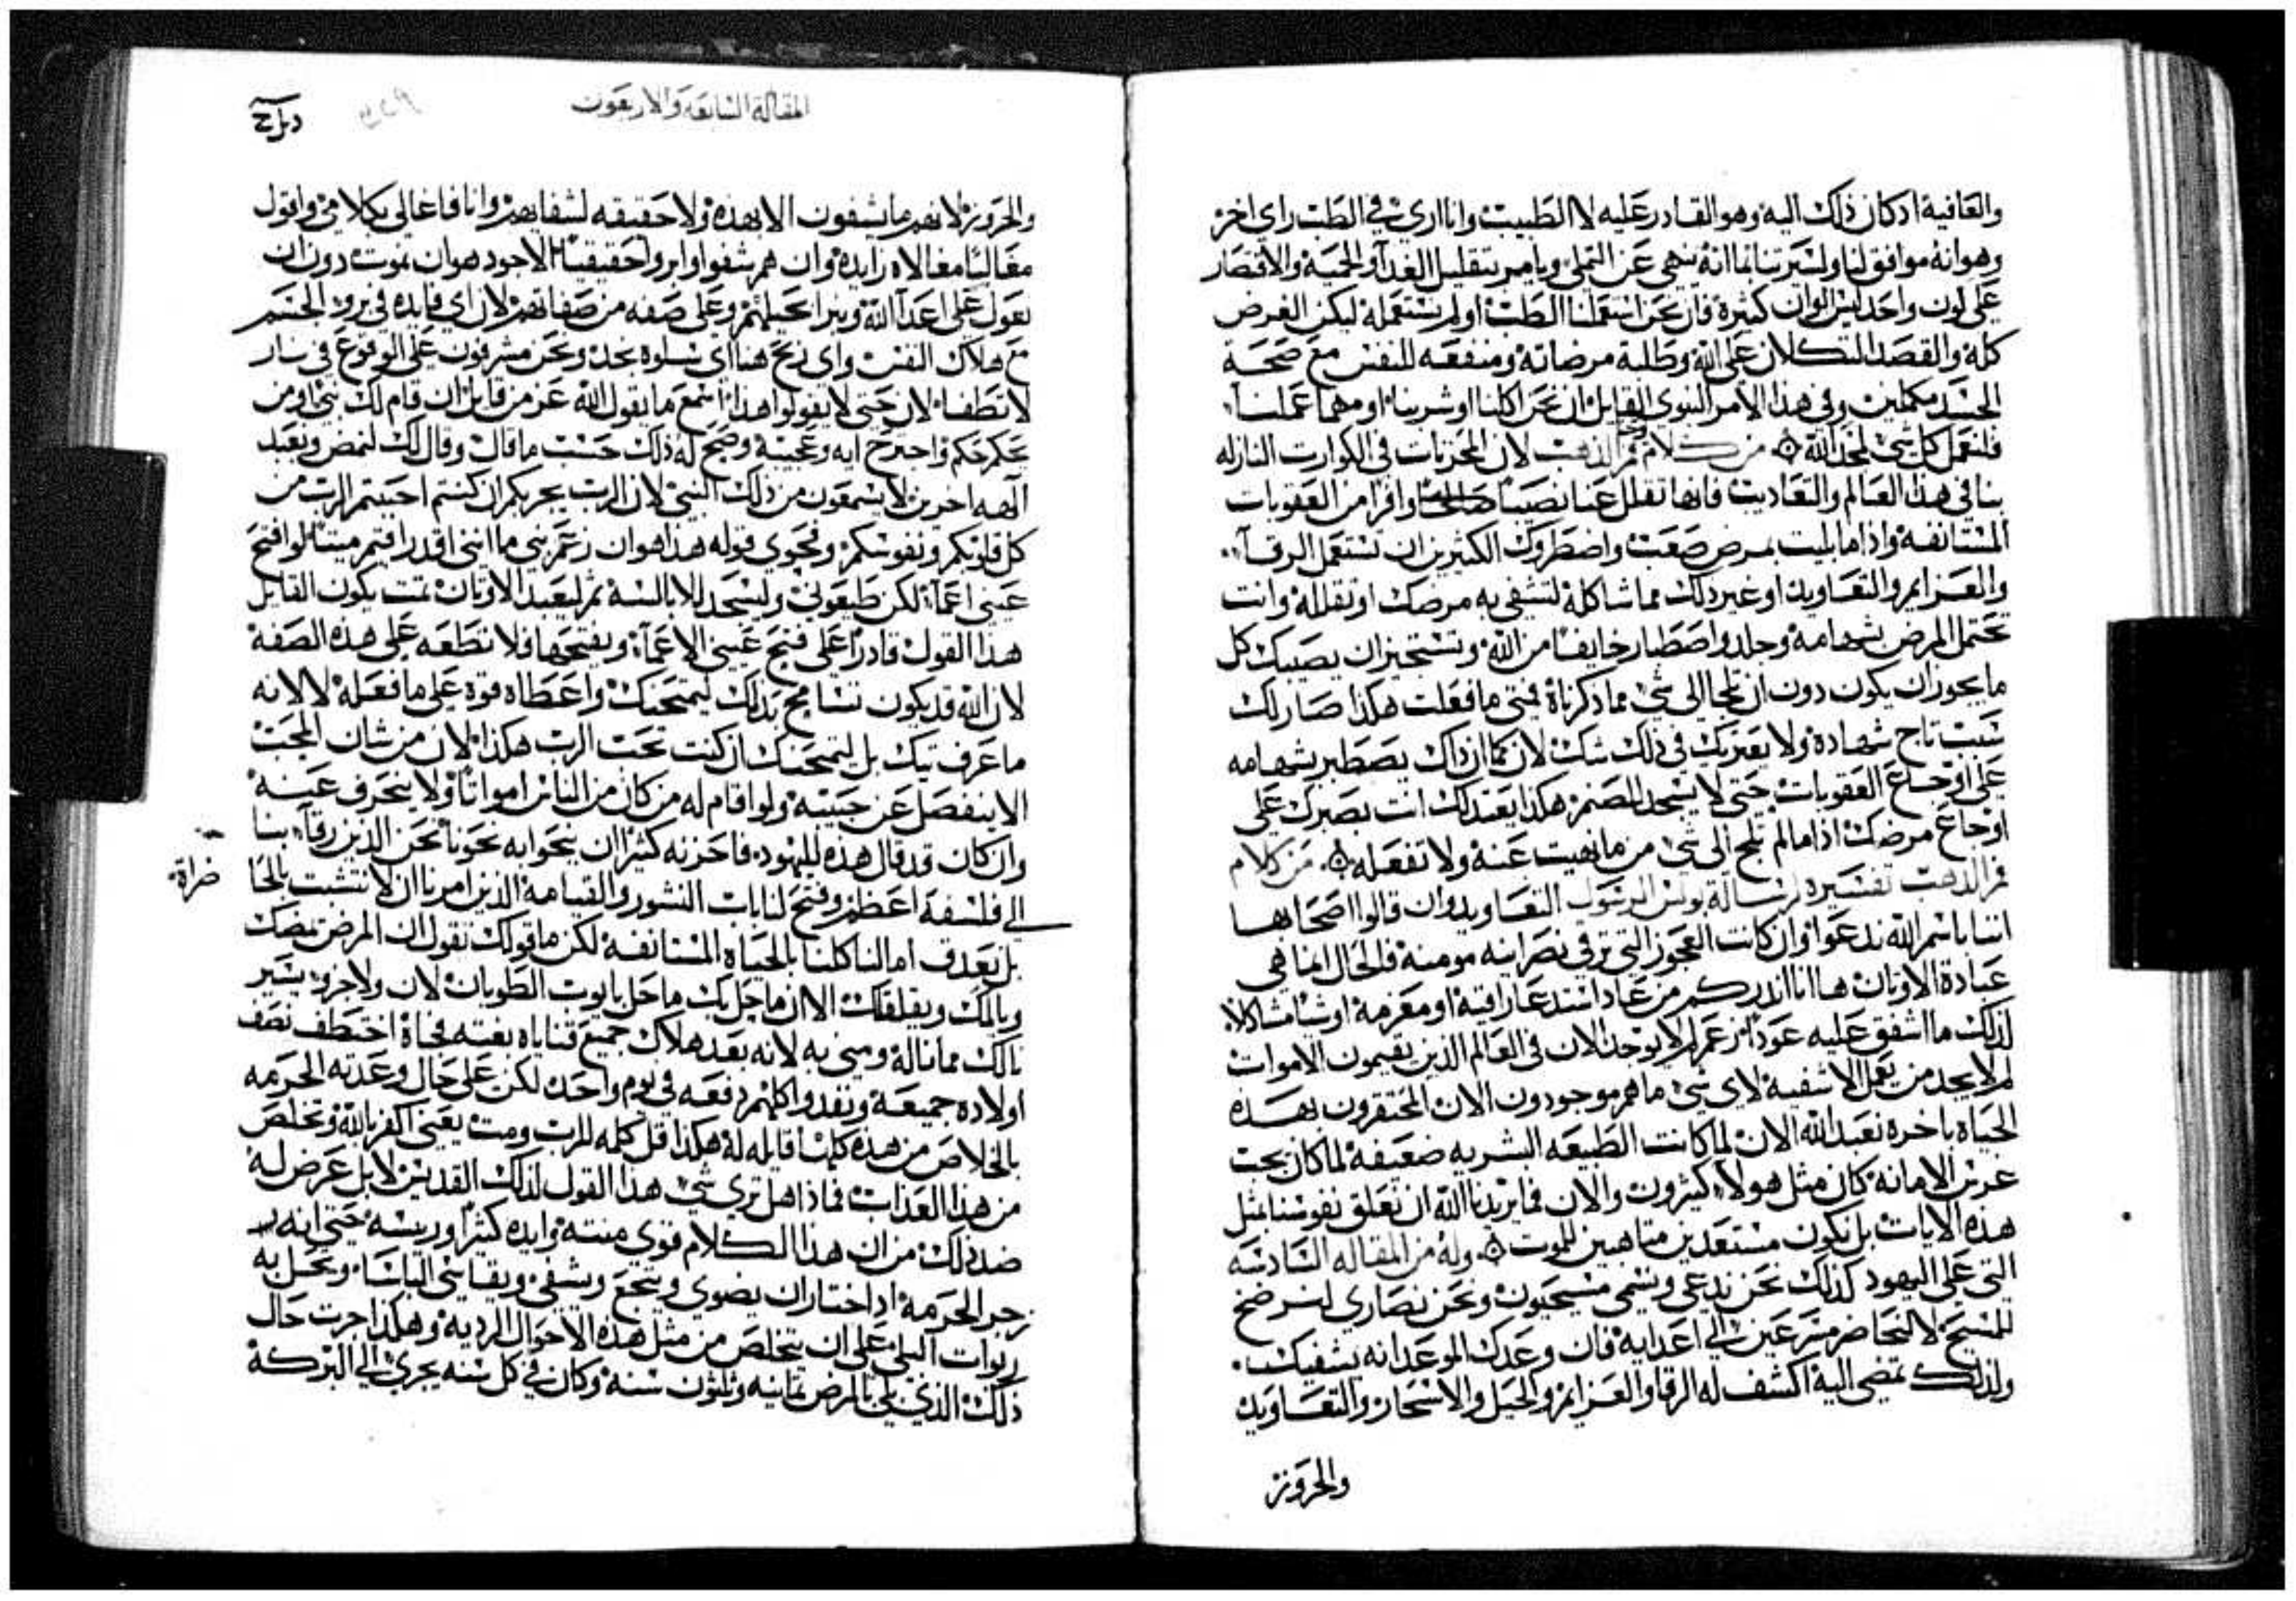 والعافية اذ كان ذلك اليه وهو القادر عليه لا الطبيب وانا اري في الطب راي اخر
وهو انه موافق لنا ولسيرتنا بما انه ينهي عن التملي ويامر بتقليل الغدآ والحمية والاقتصار
علي لون واحد ليس الوان كثيرة فان نحن استعملنا الطب او لم نستعمله ليكن الغرض
كله والقصد التكلان علي الله وطلبة مرضاته ومنفعه للنفس مع صحة
الجسد مكملين وفي هذا الامر النبوي القايل ان نحن اكلنا او شربنا او مهما عملنا
فلنعمل كل شي لمجد الله من كلام فم الذهب لان المحزنات في الكوارت النازله
بنا في هذا العالم والتعاديب فانها تقلل عنا نصيبا صالحا وافرا من العقوبات
المستانفه واذا ما بليت بمرض صعب واضطروك الكثيرين ان تستعمل الرقآ
والعزايم والتعاويد او غير ذلك مما شاكله لتشفي به مرضك او تقلله وانت
تحتمل المرض بشهامه وجلد واصطبار خايفا من الله وتستخير ان يصيبك كل
ما يجوز ان يكون دون ان تلجا الي شي مما ذكرناه فمتي ما فعلت هكذا صار لك
سبب تاج شهادة ولا يعتريك في ذلك شك لان كما ان ذاك يصطبر بشهامه
علي اوجاع العقوبات حتي لا يسجد للصنم هكذا بعد ذلك انت بصبرك علي
اوجاع مرضك اذا ما لم تلج الي شي من ما نهيت عنه ولا تفعله من كلام
فم الذهب تفسيره لرسالة بولس الرسول التعاويد وان قالوا اصحابها
اننا باسم الله ندعوا وان كانت العجوز التي ترقي نصرانيه مومنه فالحال انما هي
عبادة الاوتان ها انا اندركم من عاد استدعا راقية او معزمه او شيا مشاكلا
لذلك ما اشفق عليه عودا زعم لم لا يوجد الان في العالم الذين يقيمون الاموات
لم لا يجد من يعمل الاشفيه لاي شي ما هم موجودون الان المحتقرون بهذه
الحياه باخره نعبد الله الان لما كانت الطبيعه البشريه ضعيفه لما كان يجب
غرس الامانه كان مثل هولاء كثيرون والان فما يريدنا الله ان نعلق نفوسنا بمثل
هذه الايات بل نكون مستعدين متاهبين للموت وله من المقاله السادسه
التي علي اليهود كذلك نحن ندعي ونسمي مسيحيون ونحن نصاري لنرضخ
للمسيح لا لنحاضر مسرعين الي اعدايه فان وعدك الموعد انه يشفيك
ولذلك تمضي اليه اكشف له الرقا والعزايم والحيل والاسحار والتعاويد
والحروز
المقالة السابعة والاربعون
والحروز لانهم ما يشفون الا بهذه ولا حقيقه لشفايهم وانا فاغالي بكلامي واقول
مغاليا مغالاه زايده وان هم شفوا وابروا حقيقيا الاجود هو ان نموت دون ان
نعول علي اعدآ الله ونبرا بحيلهم وعلي صفه من صفاتهم لان اي فايده في برو الجسم
مع هلاك النفس واي ربح هنا اي سلوه نجد ونحن مشرفون علي الوقوع في نار
لا تطفا لان حتي لا يقولوا هذا اسمع ما يقول الله عز من قايل ان قام لك نبي ومن
يحكم حكم واجترح ايه وعجيبة وصح له ذلك حسب ما قال وقال لك لنمض ونعبد
آلهه اخرين لا يسمعون من ذلك النبي لان الرب يجربكم ان كنتم احببتم الرب من
كل قلوبكم ونفوسكم وفحوي قوله هذا هو ان زعم نبي ما انني اقدر اقيم ميتا او افتح
عيني اعمآ لكن طيعوني ولنسجد للابالسه ثم لنعبد الاوتان تمت يكون القايل
هذا القول قادرا علي فتح عيني الاعمآ ويفتحها فلا تطعه علي هذه الصفة
لان الله قد يكون تسامح بذلك ليمتحنك واعطاه قوة علي ما فعله لا لانه
ما عرف نيتك بل ليمتحنك ان كنت تحب الرب هكذا لان من شان المحب
الا ينفصل عن حبيبه ولو اقام له من كان من الناس امواتا ولا ينحرف عنه
وان كان قد قال هذه لليهود فاحزنه كثيرا ان ينحوا به نحونا نحن الذين رقآ بنا
الي فلسفه اعظم وفتح لنا باب النشور والقيامه الذين امرنا ان لا نتشبت بالحا
ضراة
بل بعد ف امالنا كلنا بالحياه المستانفه لكن ما قولك تقول ان المرض يمضك
ويالمك ويقلقك الا ان ما حل بك ما حل بايوب الطوبان لان ولا جزو يسير
نالك مما ناله ومني به لانه بعد هلاك جميع قناياه بغته فجاة اختطف نصف
اولاده جميعه ونفدوا كلهم دفعه في يوم واحد لكن علي حال وعدته الحرمه
بالخلاص من هذه كلها قايله له هكذا قل كلمه للرب ومت يعني اكفر بالله وتخلص
من هذا العذاب فماذا هل تري شي هذا القول لذلك القديس لا بل عرض له
ضد ذلك من ان هذا الكلام قوي منته وايده كثيرا وريسه حتي انه
زجر الحرمه اذ اختار ان يضوي ويتجع ويشفي ويقاسي الباسا ويحل به
ربوات البلي علي ان يتخلص من مثل هذه الاحوال الرديه وهكذا جرت حال
ذلك الذي بلي بالمرض ثمانيه وثلثون سنه وكان في كل سنه يجري الي البركة